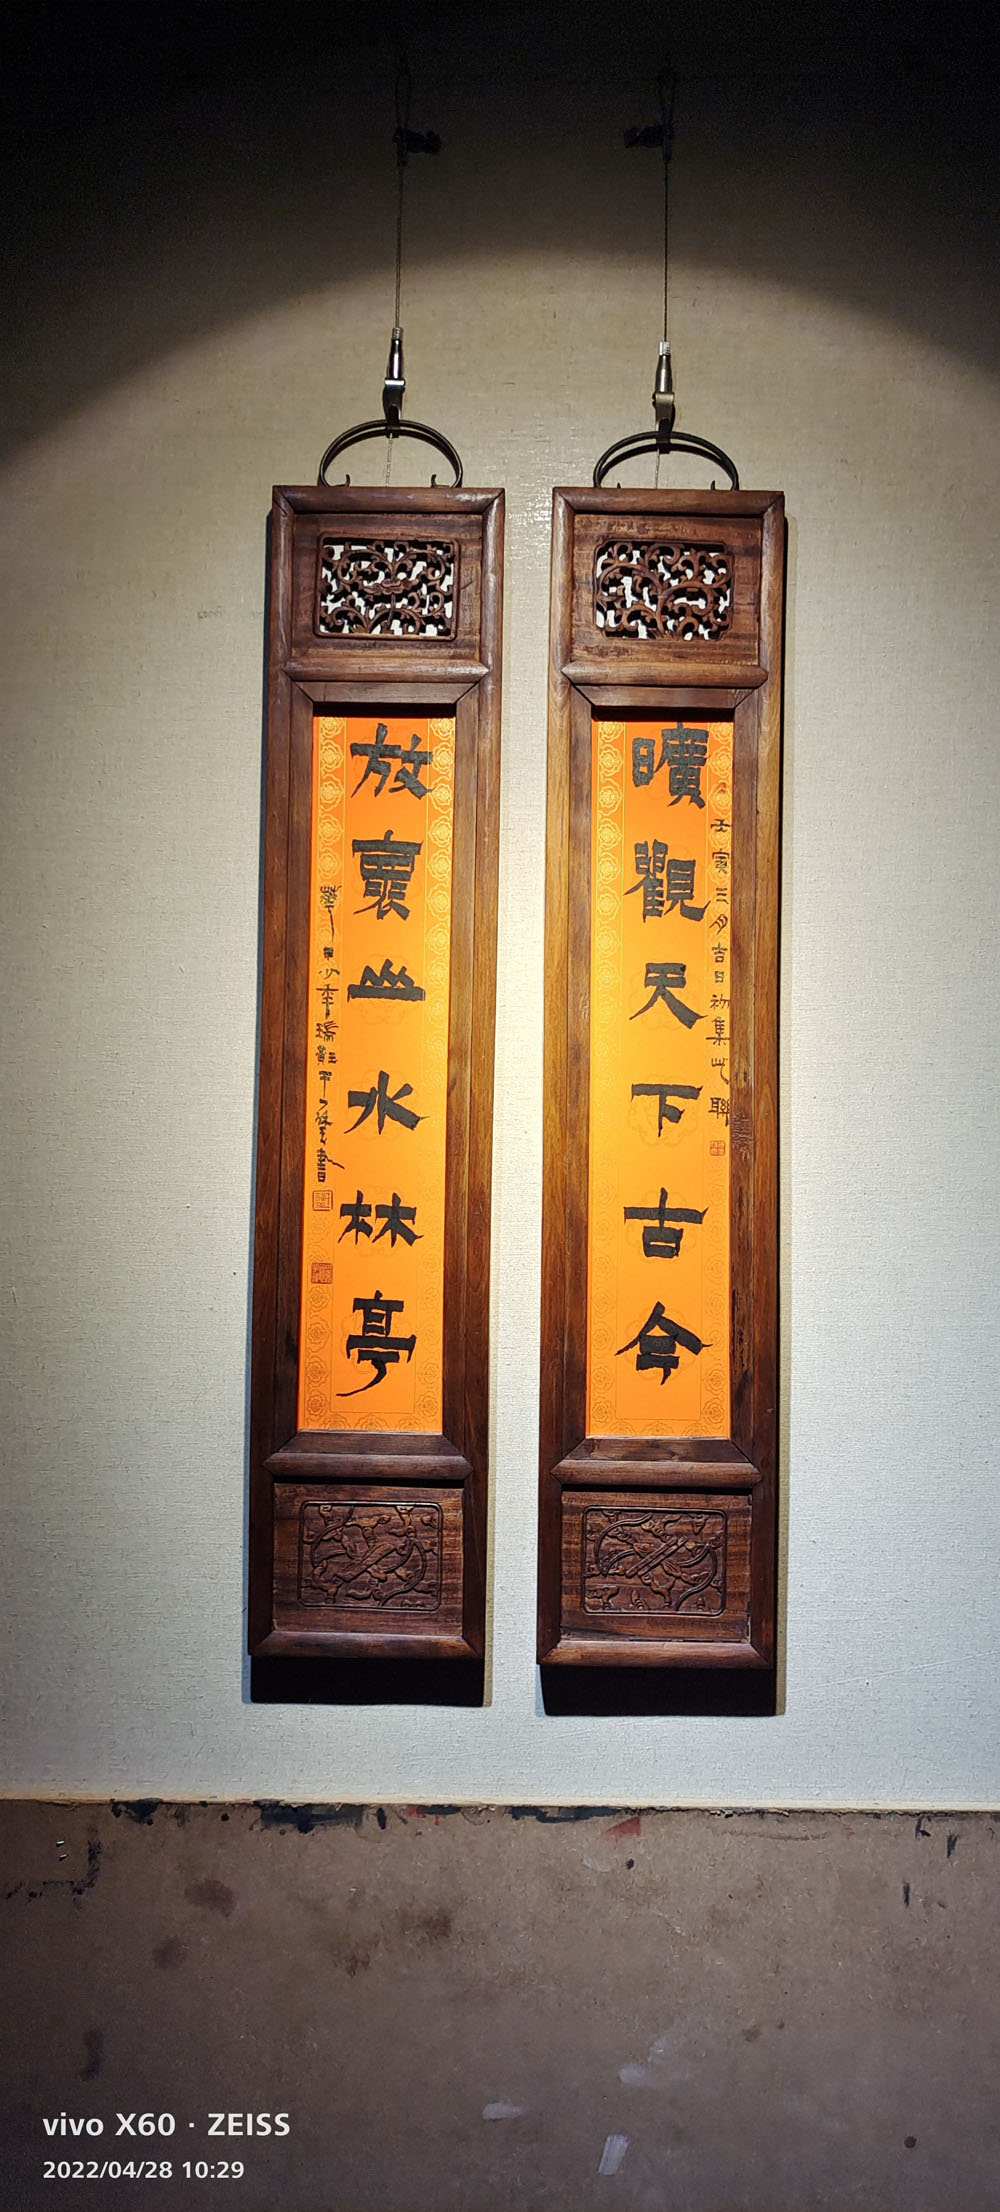 曠觀天下古今
壬寅三月吉日初集此聯
放褱山水林亭
vivo X60 · ZEISS
2022/04/28 10:29